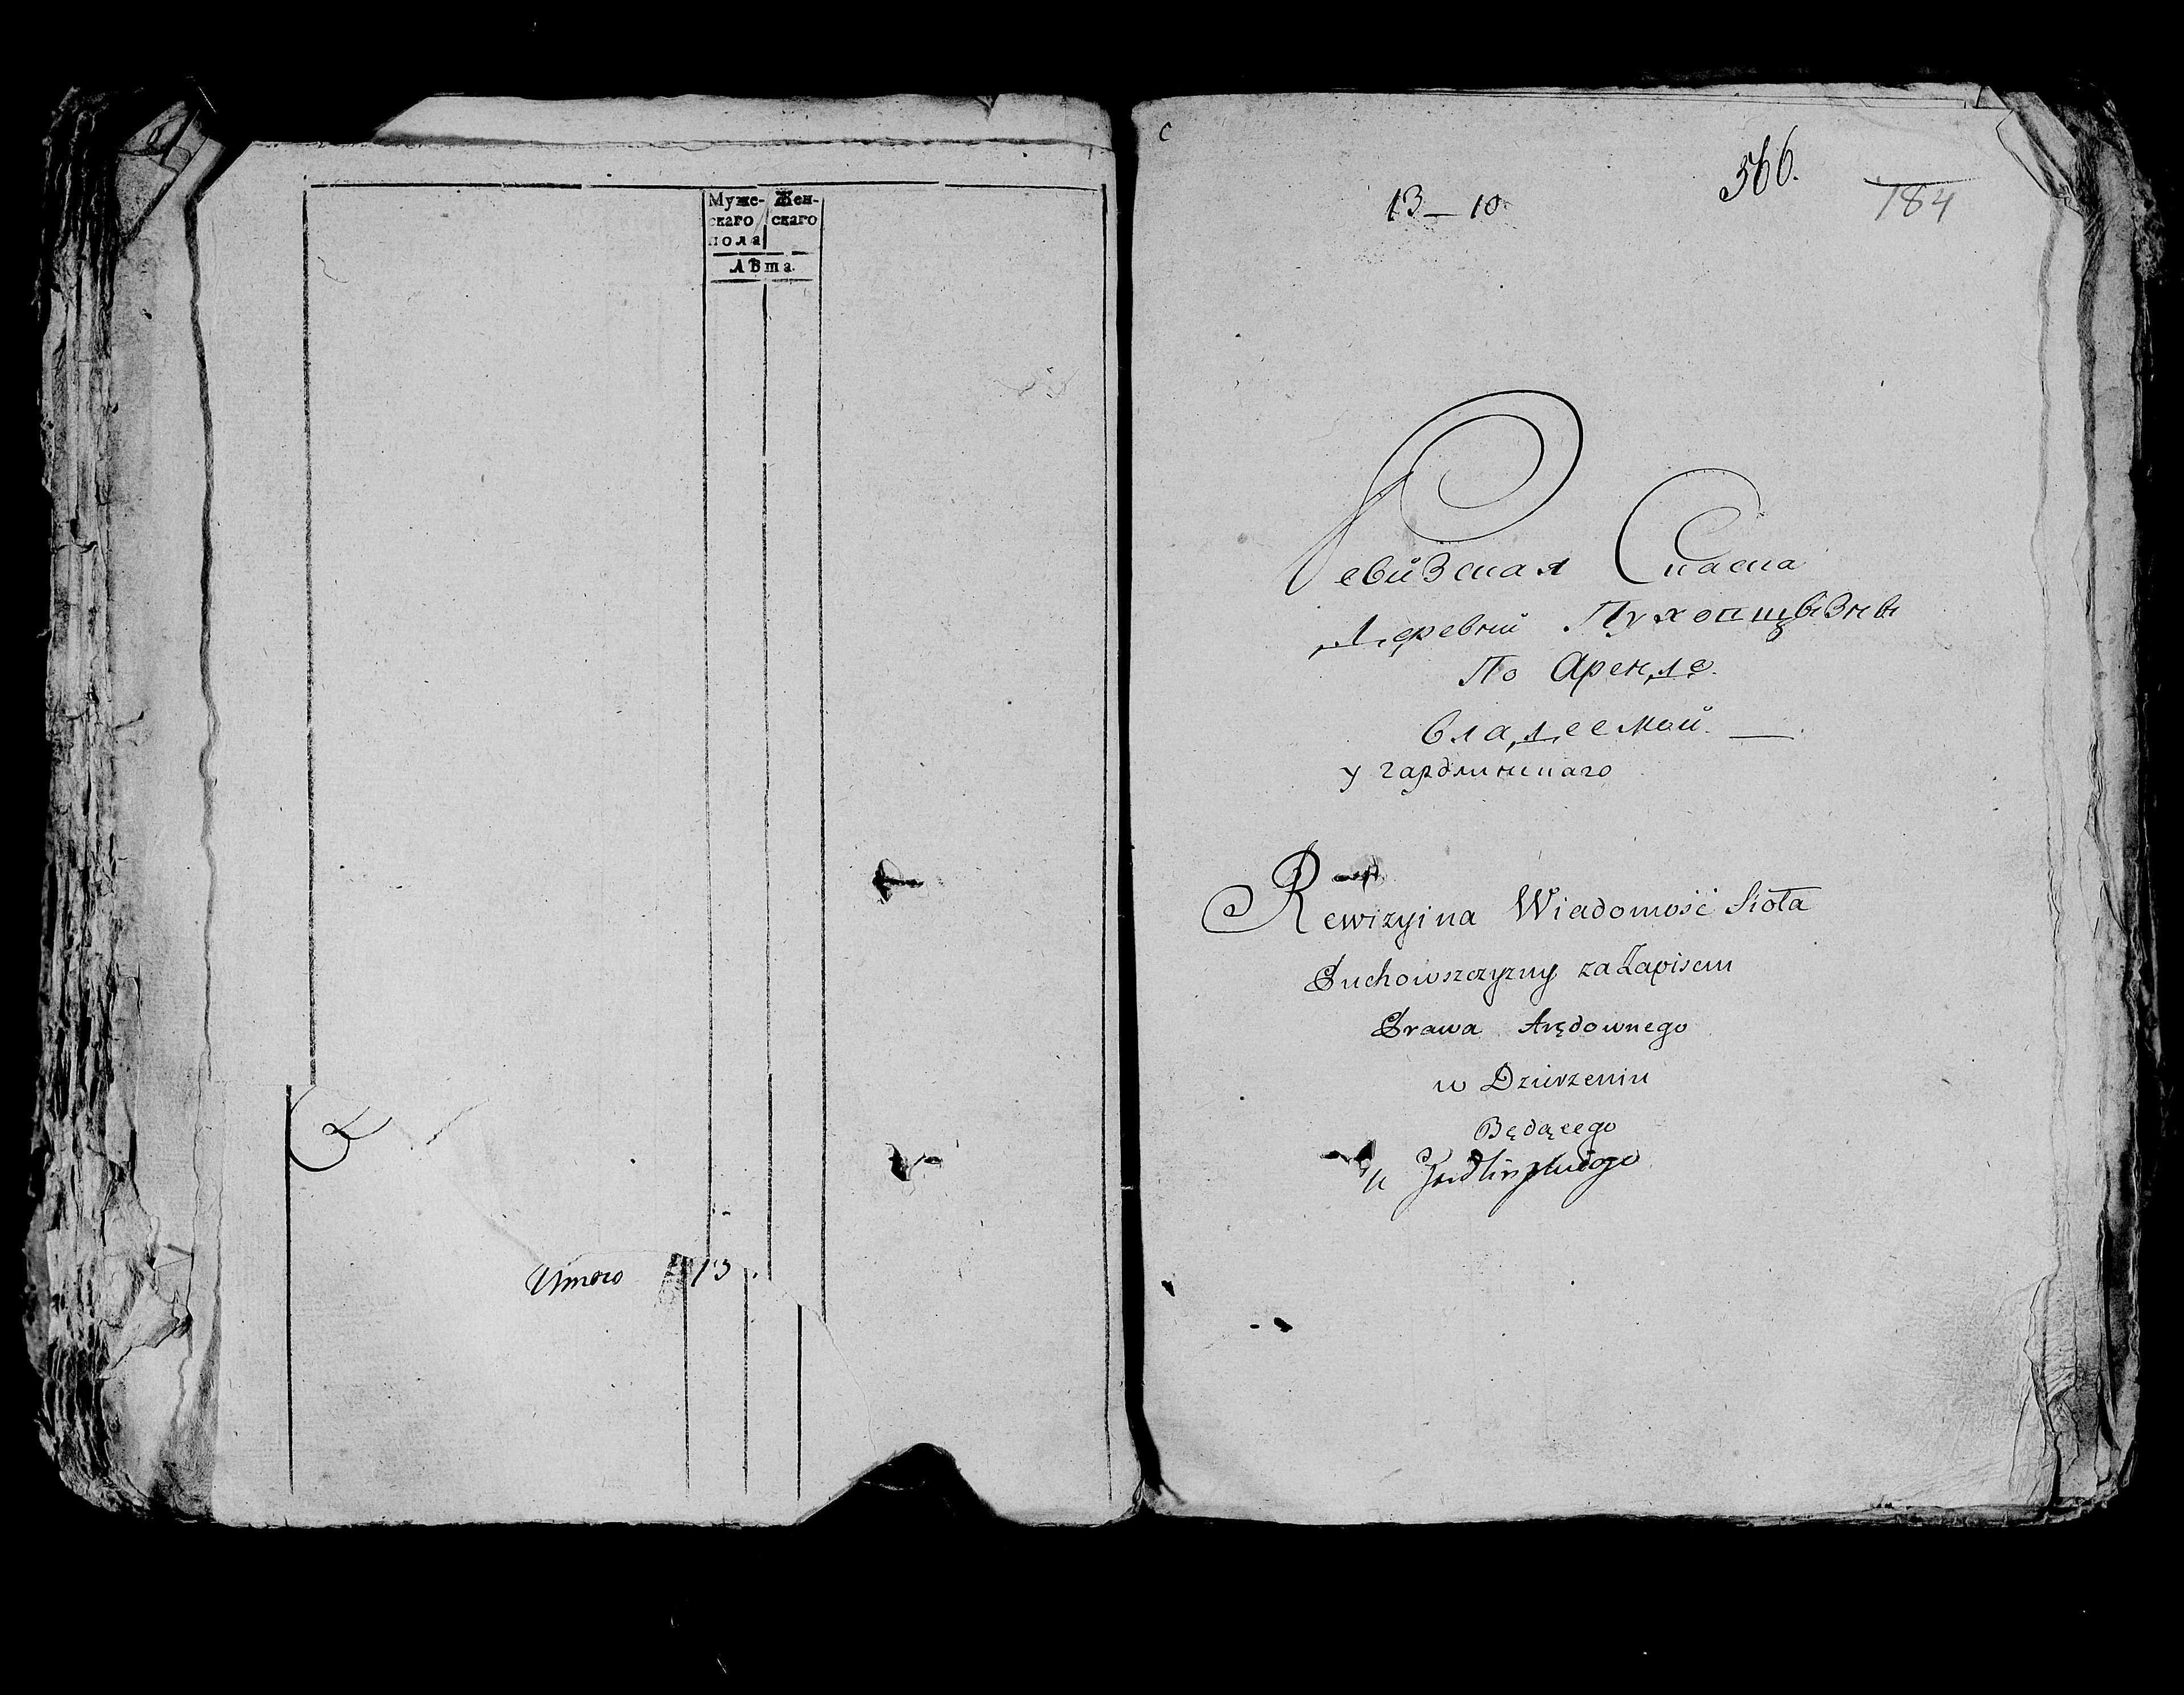 Муже- Жен-
скаго скаго
пола
Лѣта.
Итого 13
566.
13 – 10
184
Ревизская Скаска
Деревни Пухопщизны
По Аренде
владеемой.
у гардлинскаго
Rewizyina Wiadomość Sioła
Puchowszczyzny za Zapisem
Prawa Arędownego
w Dzierżeniu
Będącego
u